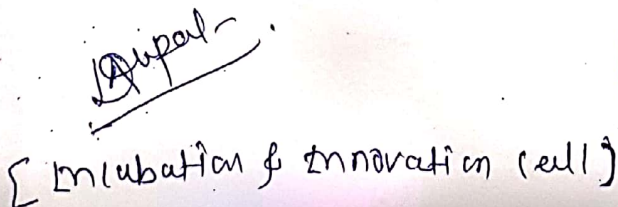 [Incubation & Innovation Cell]